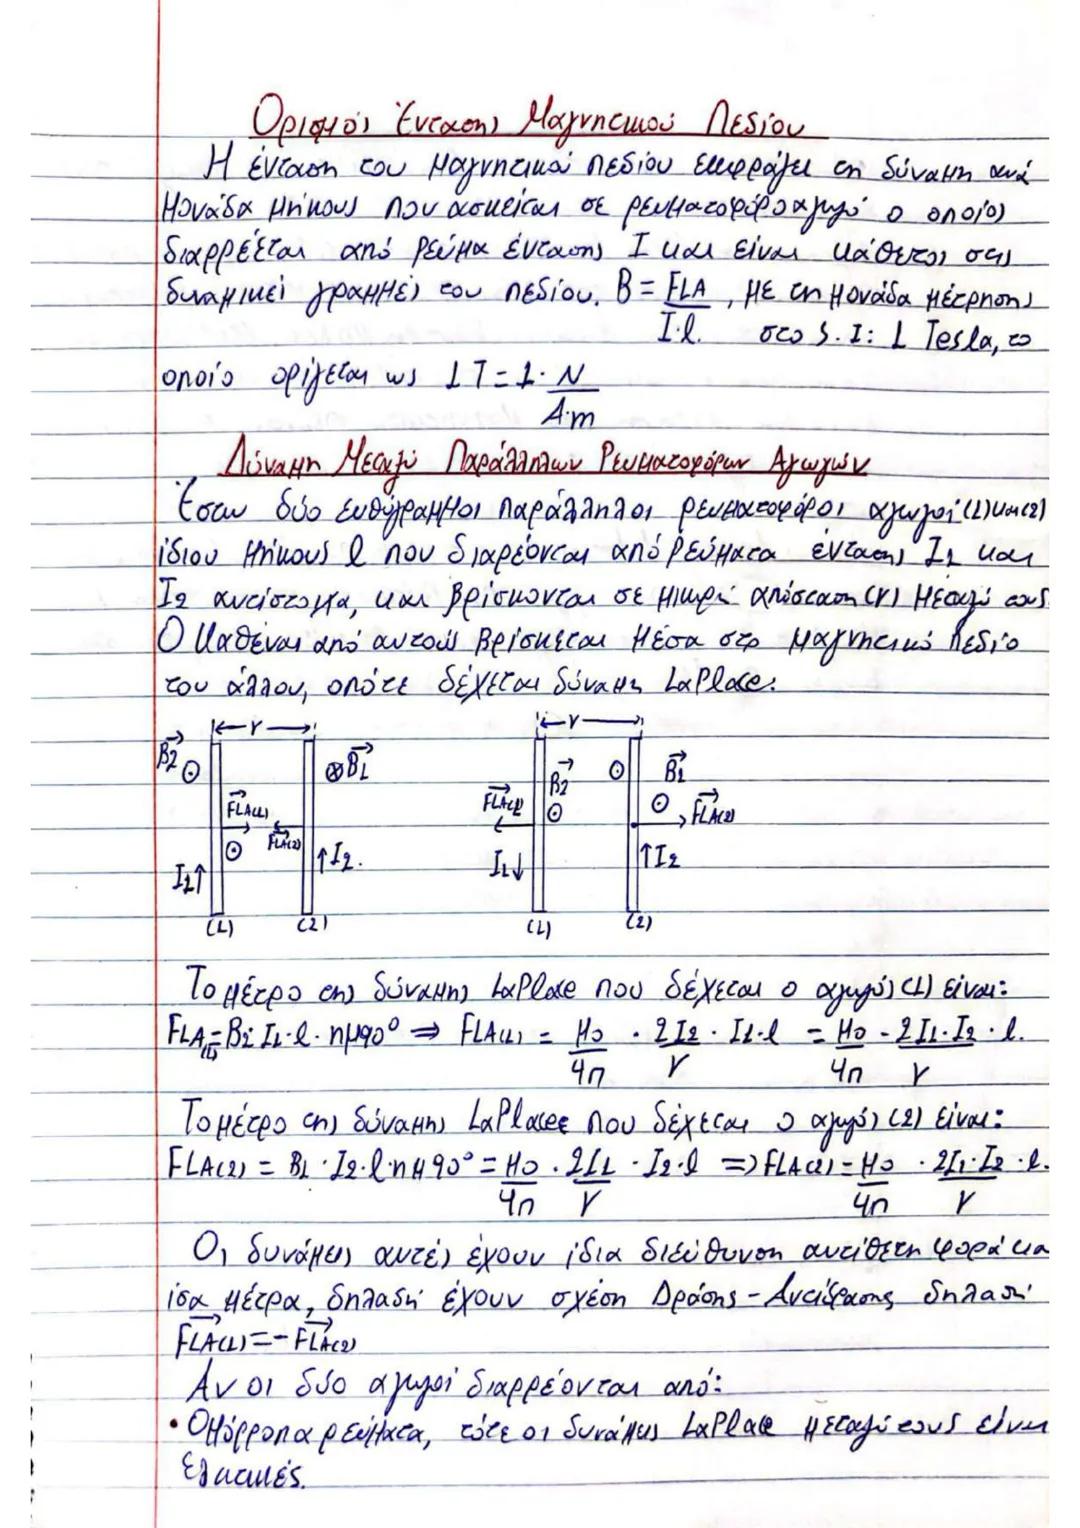 Ορισμός Έντασης Μαγνητικού Πεδίου
Η ένταση του μαγνητικού πεδίου εκφράζει τη δύναμη ανά
μονάδα μήκους που ασκείται σε ρευματοφόρο αγωγό ο οποίος
διαρρέεται από ρεύμα έντασης I και είναι κάθετος στις
δυναμικές γραμμές του πεδίου. B = FLA / I·l , με τη μονάδα μέτρησης
στο S.I: 1 Tesla, το
οποίο ορίζεται ως 1T = 1· N / A·m
Δύναμη Μεταξύ Παράλληλων Ρευματοφόρων Αγωγών
Έστω δύο ευθύγραμμοι παράλληλοι ρευματοφόροι αγωγοί (1) και (2)
ίδιου μήκους l που διαρέονται από ρεύματα έντασης I1 και
I2 αντίστοιχα, και βρίσκονται σε μικρή απόσταση (r) μεταξύ τους.
Ο καθένας από αυτούς βρίσκεται μέσα στο μαγνητικό πεδίο
του άλλου, οπότε δέχεται δύναμη LaPlace:
r r
B2 ⊙ ⊗ B1 B2 ⊙ ⊙ B1 ⊙
FLA(1) FLA(2) FLA(1) FLA(2)
⊙ I1↑ ↑I2. I1↓ ↑I2
(1) (2) (1) (2)
Το μέτρο της δύναμης LaPlace που δέχεται ο αγωγός (1) είναι:
FLA(1) = B2·I1·l·ημ90° ⇒ FLA(1) = μο/4π · 2I2/r · I1·l = μο/4π · 2I1·I2/r · l.
Το μέτρο της δύναμης LaPlace που δέχεται ο αγωγός (2) είναι:
FLA(2) = B1·I2·l·ημ90° = μο/4π · 2I1/r · I2·l ⇒ FLA(2) = μο/4π · 2I1·I2/r · l.
Οι δυνάμεις αυτές έχουν ίδια διεύθυνση αντίθετη φορά και
ίσα μέτρα, δηλαδή έχουν σχέση Δράσης - Αντίδρασης δηλαδή
FLA(1) = - FLA(2)
Αν οι δύο αγωγοί διαρρέονται από:
• Ομόρροπα ρεύματα, τότε οι δυνάμεις LaPlace μεταξύ τους είναι
Ελκτικές.